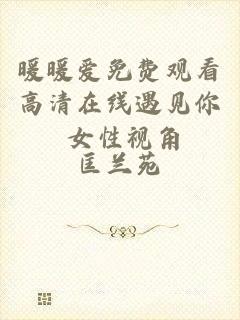 暖暖爱免费观看
高清在线遇见你
女性视角
匡兰苑